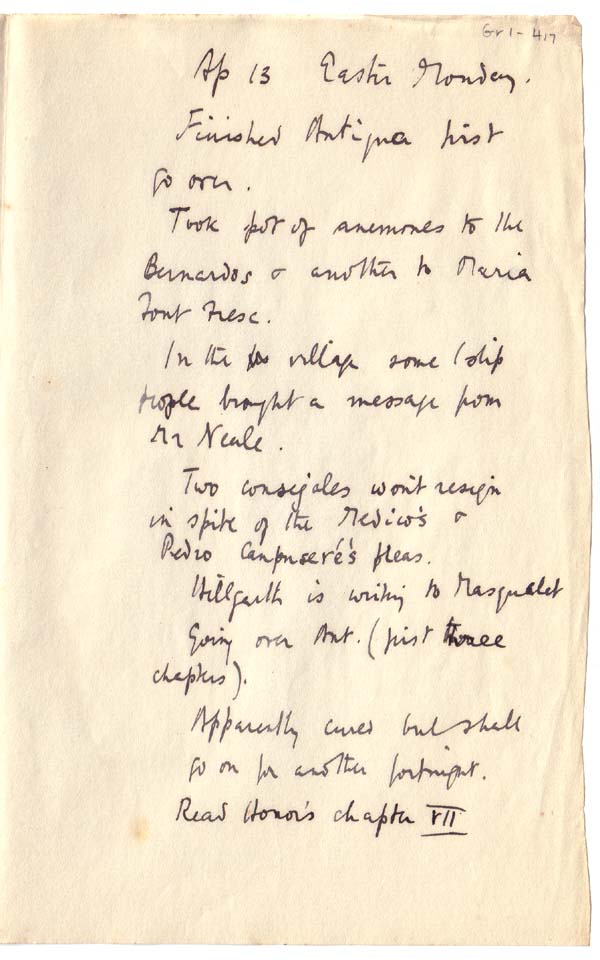 Gr1-417
Ap 13 Easter Monday.
Finished Antigua first
go over.
Took pot of anemones to the
Bernardos & another to Maria
Font Fresc.
In the village some
people brought a message from
Mr Neale.
Two consejales won't resign
in spite of the Medico's &
Pedro pleas.
Hillgarth is writing to Masquelet
Going over Ant. (first three
chapters).
Apparently cured but shall
go on for another fortnight.
Read Honor's chapter VII